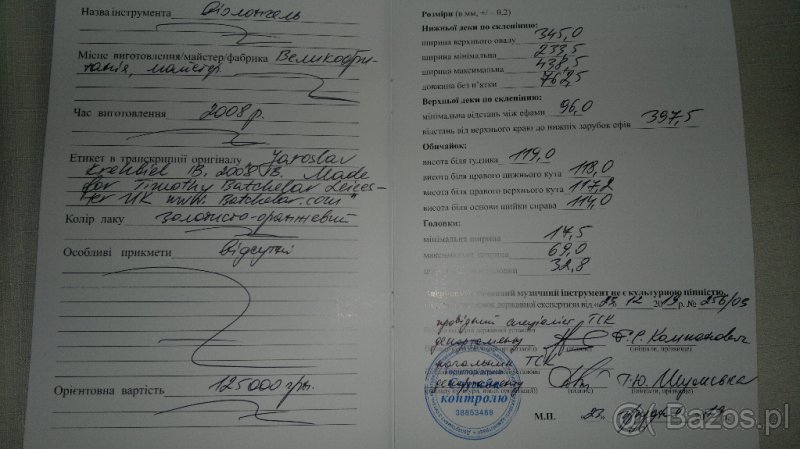 Назва інструмента Віолончель
Місце виготовлення/майстер/фабрика Великобри-
танія, майстер
Час виготовлення 2008 р.
Етикет в транскрипції оригіналу "Yaroslav
Krehbiel IB. 2008 IB. Made
for Timothy Batchelar Leices-
ter UK www. Batchelar.com"
Колір лаку золотисто-оранжевий
Особливі прикмети Відсутні
Орієнтовна вартість 125000 грн.
Розміри (в мм, +/− 0,2)
Нижньої деки по склепінню:
ширина верхнього овалу 345,0
ширина мінімальна 233,5
ширина максимальна 438,5
довжина без п'ятки 762,5
Верхньої деки по склепінню:
мінімальна відстань між ефами 96,0
відстань від верхнього краю до нижніх зарубок ефів 397,5
Обичайок:
висота біля гудзика 119,0
висота біля правого нижнього кута 118,0
висота біля правого верхнього кута 117,2
висота біля основи шийки справа 114,0
Головки:
мінімальна ширина 17,5
максимальна ширина 69,0
32,8
музичний інструмент не є культурною цінністю.
державної експертизи від «25» 12 2019 р. № 256/03
провідний спеціаліст ТСК
департаменту
ТСК
департаменту
контролю
38853488
М.П. 25 грудня 19
Bazos.pl